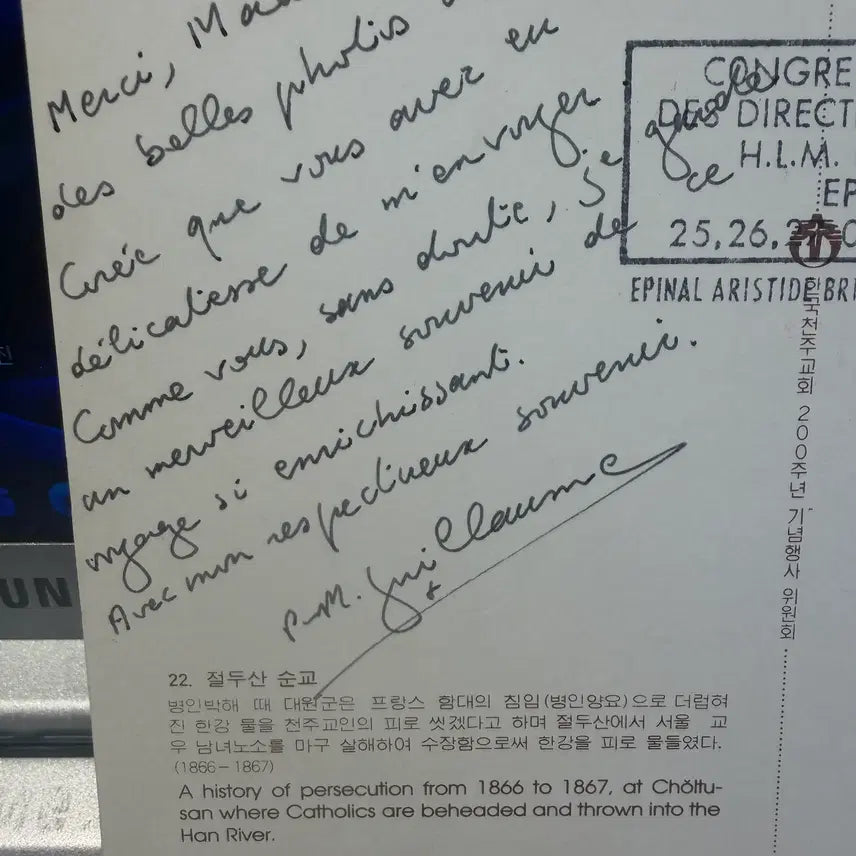 Merci, Ma
des belles photos
Corée que vous avez eu
délicatesse de m'en voyer
Comme vous, sans doute, je garde
un merveilleux souvenir de ce
voyage si enrichissant.
Avec mon respectueux souvenir.
P.-M. Guillaume
CONGRE
DES DIRECT
H.L.M.
EP
25, 26, 2
EPINAL ARISTIDE BRI
한국천주교회 200주년 기념행사 위원회
UN
진
22. 절두산 순교
병인박해 때 대원군은 프랑스 함대의 침입(병인양요)으로 더럽혀
진 한강 물을 천주교인의 피로 씻겠다고 하며 절두산에서 서울 교
우 남녀노소를 마구 살해하여 수장함으로써 한강을 피로 물들였다.
(1866-1867)
A history of persecution from 1866 to 1867, at Chŏltu-
san where Catholics are beheaded and thrown into the
Han River.